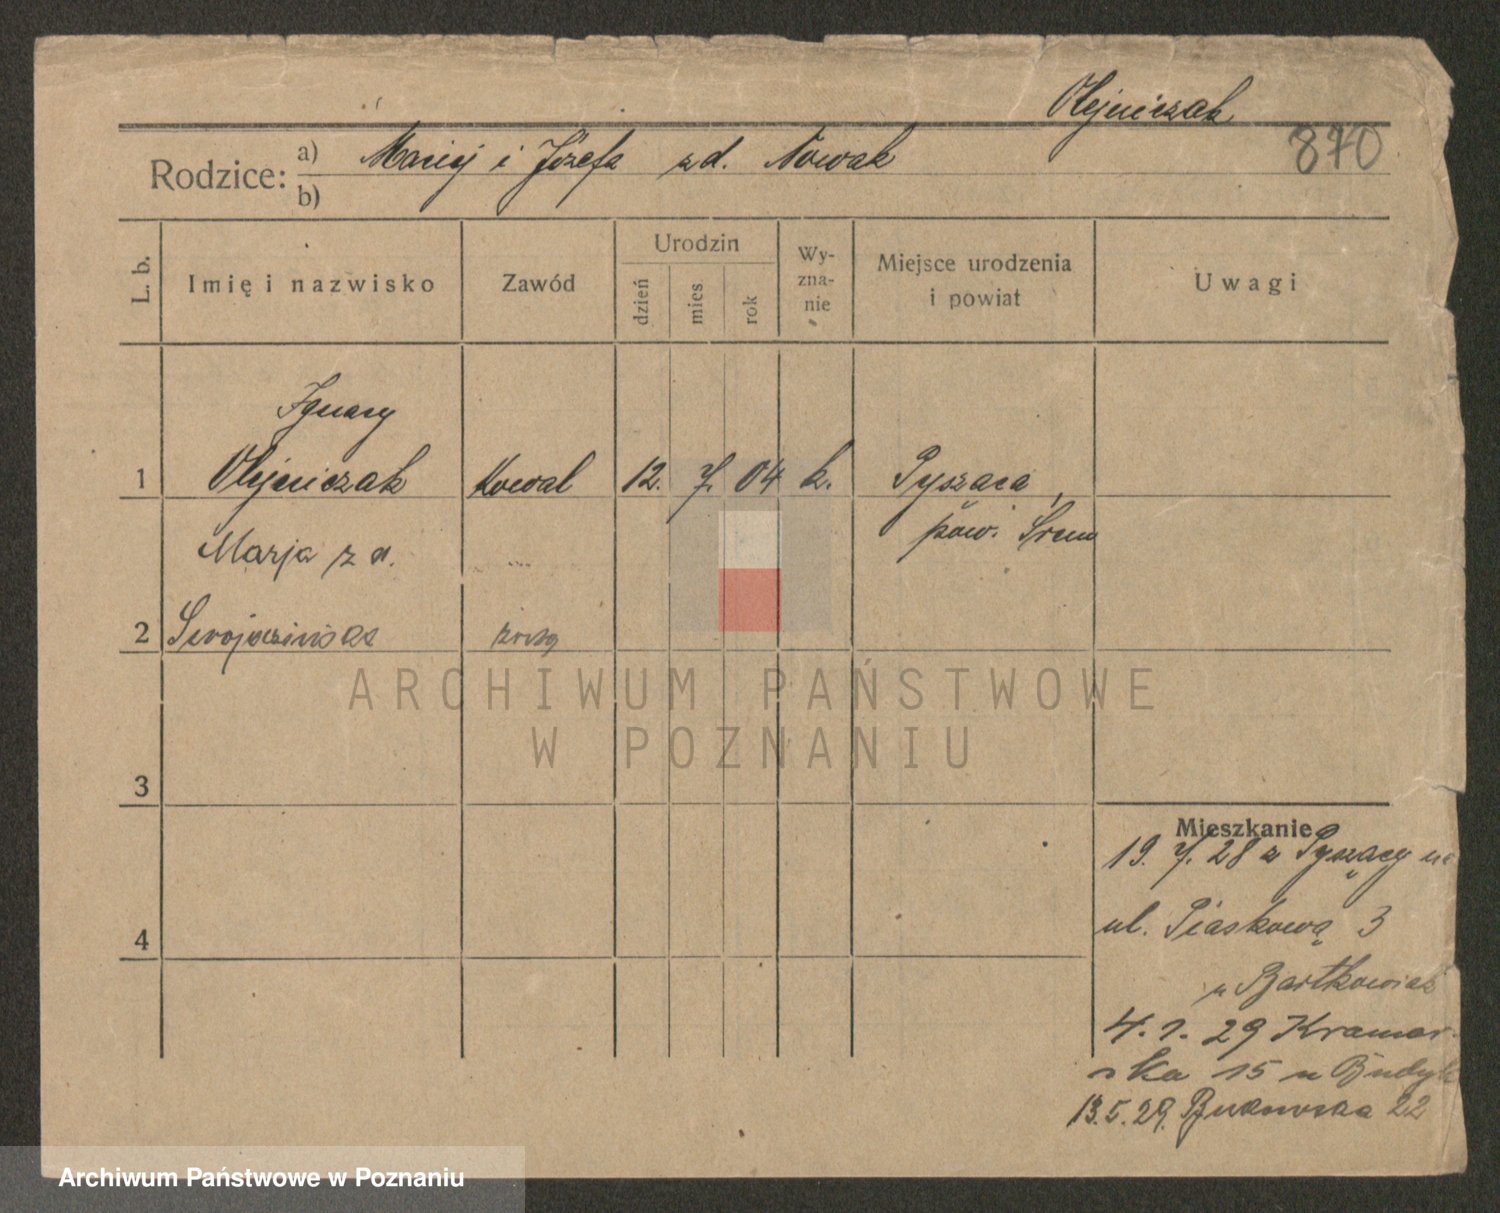 Olejniczak
870
Rodzice: a) Maciej i Józefa zd. Nowak
b)
L. b.
Imię i nazwisko
Zawód
Urodzin
dzień
mies
rok
Wy-
zna-
nie
Miejsce urodzenia
i powiat
Uwagi
Ignacy
1 Olejniczak kowal 12. 7. 04 k. Pyszaca,
pow. Śrem
Marja z d.
2
3
4
Mieszkanie
19. 7. 28 z Pyszący na
ul. Piaskową 3
u Bartkowiak
4. 1. 29 Kramar-
ska 15 u
13. 5. 29. Bukowska 22
ARCHIWUM PAŃSTWOWE
W POZNANIU
Archiwum Państwowe w Poznaniu